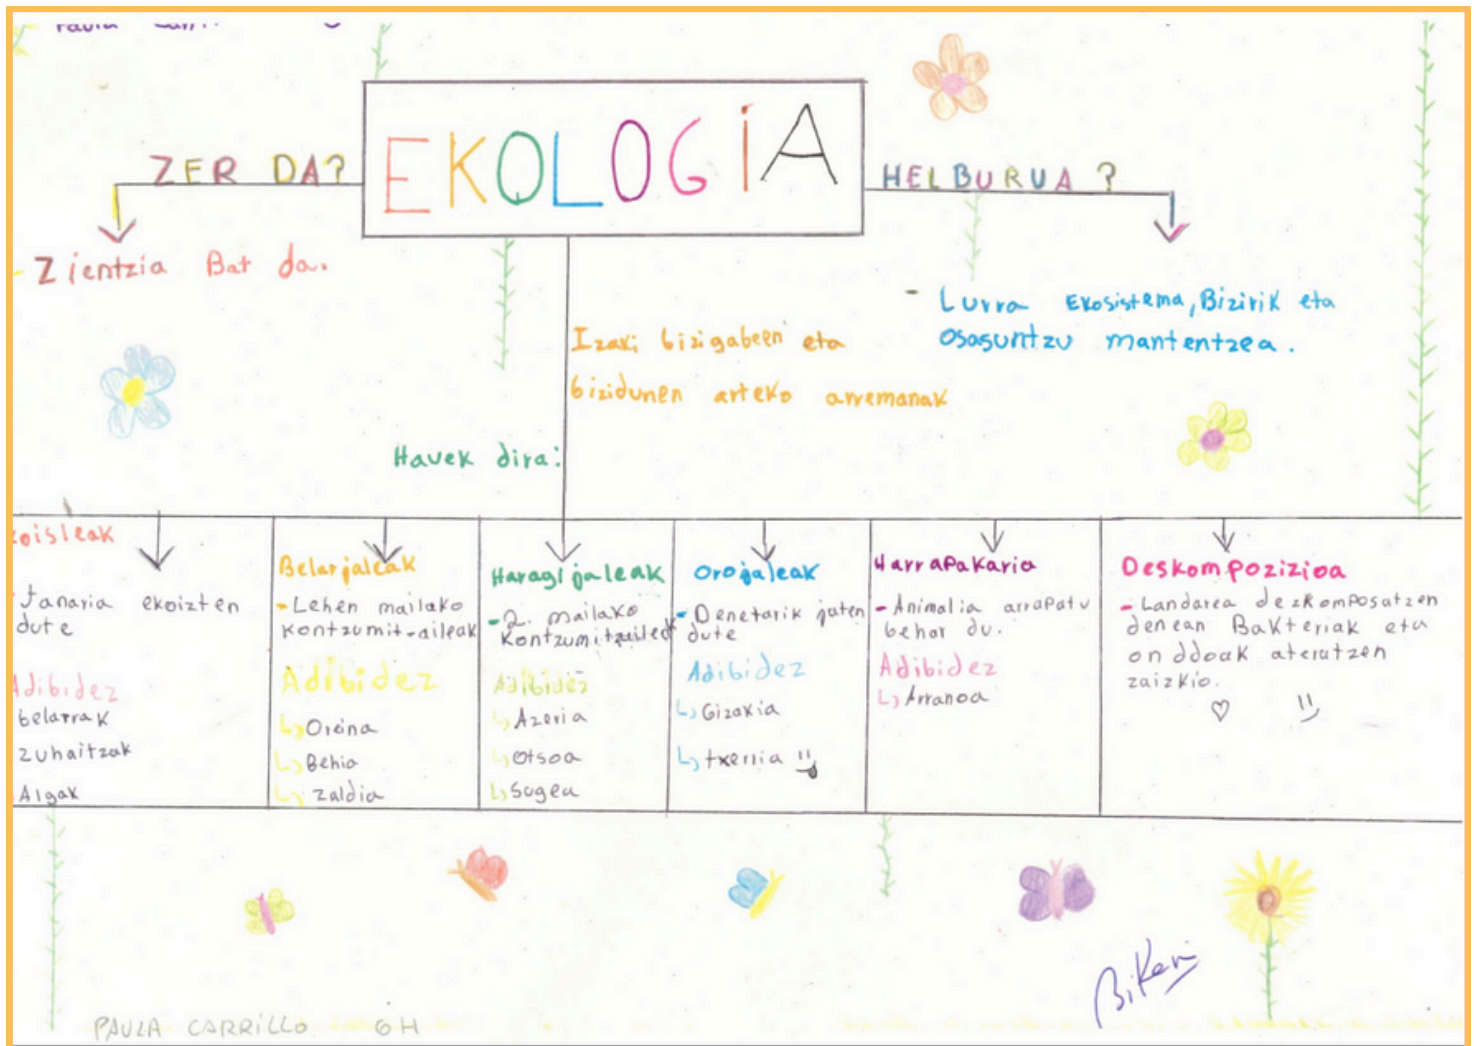 EKOLOGIA
ZER DA?
- Zientzia Bat da.
HELBURUA ?
- Lurra Ekosistema, Bizirik eta
ososuntzu mantentzea.
Izaki bizigabeen eta
bizidunen arteko arremanak
Hauek dira:
koisleak
Janaria ekoizten
dute
Adibidez
belarrak
zuhaitzak
Algak
Belarjaleak
- Lehen mailako
kontzumit-aileak
Adibidez
↳ Oreina
↳ Behia
↳ Zaldia
Haragijaleak
- 2. mailako
kontzumitzaileak
Adibidez
↳ Azeria
↳ Otsoa
↳ Sugea
Orojaleak
- Denetarik jaten
dute
Adibidez
↳ Gizakia
↳ txerria
Harrapakaria
- Animalia arrapatu
behar du.
Adibidez
↳ Arranoa
Deskompozizioa
- Landarea dezkomposatzen
denean Bakteriak eta
onddoak ateratzen
zaizkio.
PAULA CARRILLO 6H